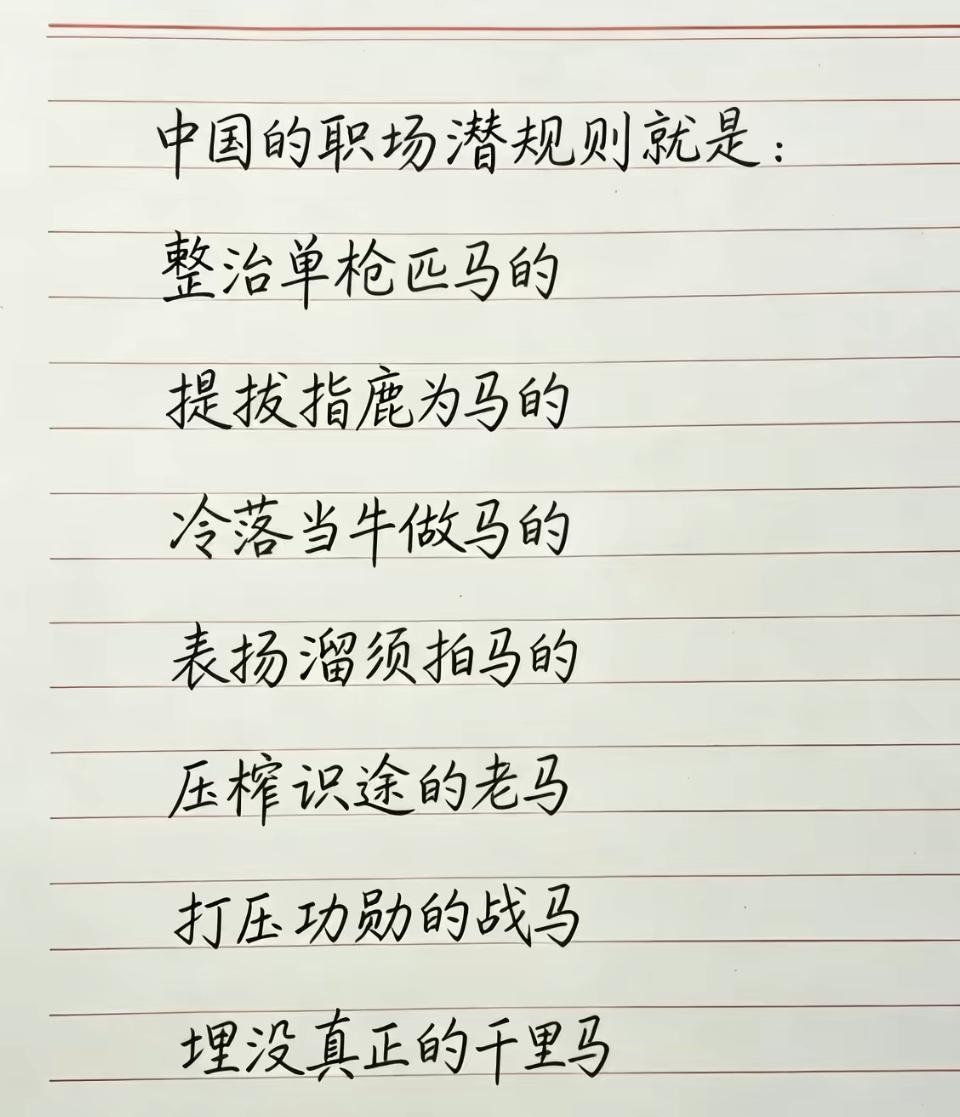 中国的职场潜规则就是：
整治单枪匹马的
提拔指鹿为马的
冷落当牛做马的
表扬溜须拍马的
压榨识途的老马
打压功勋的战马
埋没真正的千里马